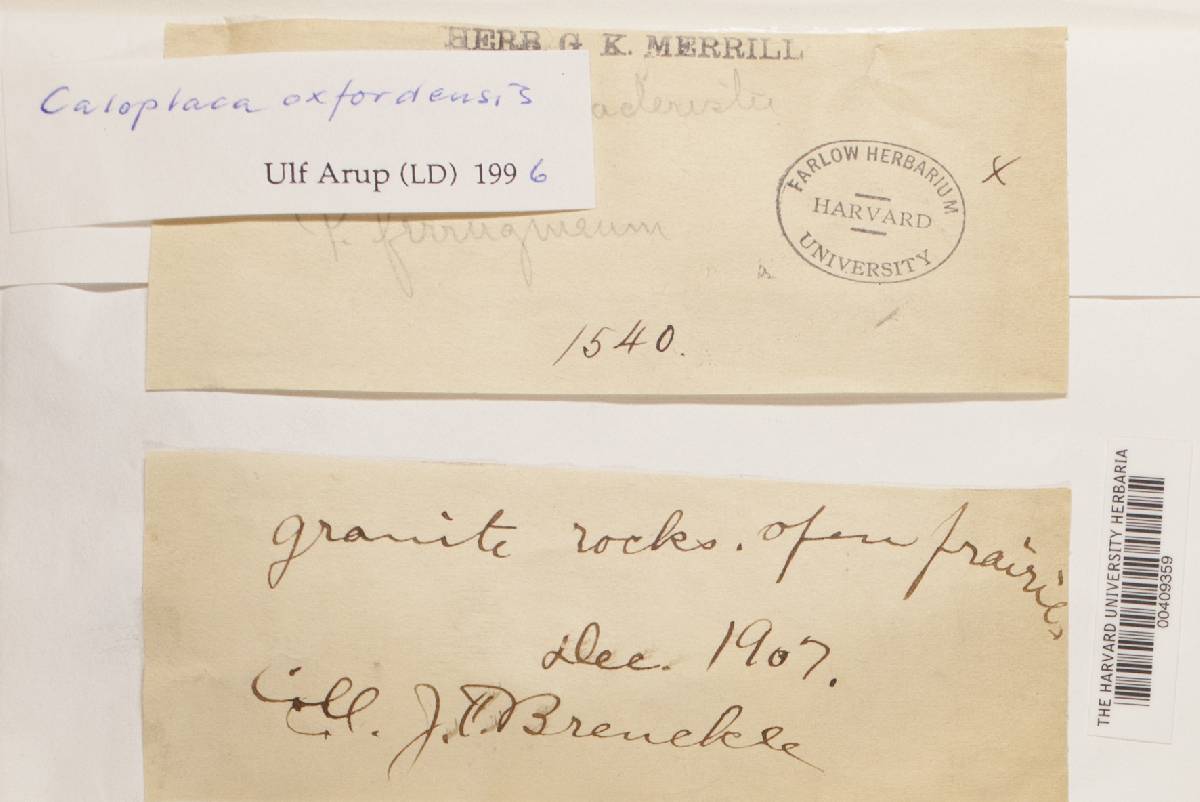 HERB G. K. MERRILL
Caloplaca oxfordensis
Ulf Arup (LD) 1996
FARLOW HERBARIUM
HARVARD
UNIVERSITY
x
P. ferrugineum
1540.
granite rocks. open prairie,
Dec. 1907.
Coll. J.F. Brenckle
THE HARVARD UNIVERSITY HERBARIA
00409359